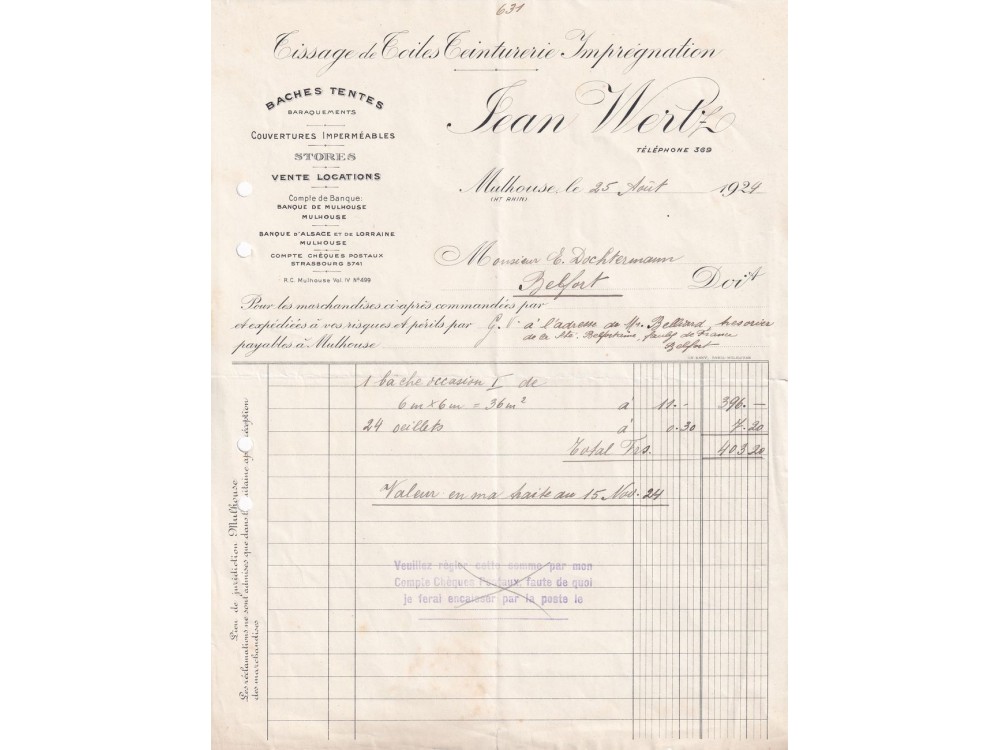 631
Tissage de Toiles Teinturerie Imprégnation
BACHES TENTES
BARAQUEMENTS
COUVERTURES IMPERMÉABLES
STORES
VENTE LOCATIONS
Compte de Banque:
BANQUE DE MULHOUSE
MULHOUSE
BANQUE D'ALSACE ET DE LORRAINE
MULHOUSE
COMPTE CHÈQUES POSTAUX
STRASBOURG 5741
R.C. Mulhouse Vol. IV Nº 499
Jean Wertz
TÉLÉPHONE 369
Mulhouse, le 25 Août 1924
(HT RHIN)
Monsieur E. Dochtermann
Belfort Doit
Pour les marchandises ci-après commandées par
et expédiées à vos risques et périls par G.V. à l'adresse de Mr. trésorier
payables à Mulhouse de la Sté. Belfortaine, de France
Belfort
1 bâche occasion I de
6m x 6m = 36m² à 11.- 396.-
24 oeillets à 0.30 7.20
Total Frs. 403.20
Valeur en ma traite au 15 Nov. 24
Veuillez régler cette somme par mon
Compte Chèques Postaux, faute de quoi
je ferai encaisser par la poste le
Lieu de juridiction Mulhouse
Les réclamations ne sont admises que dans la après réception
des marchandises